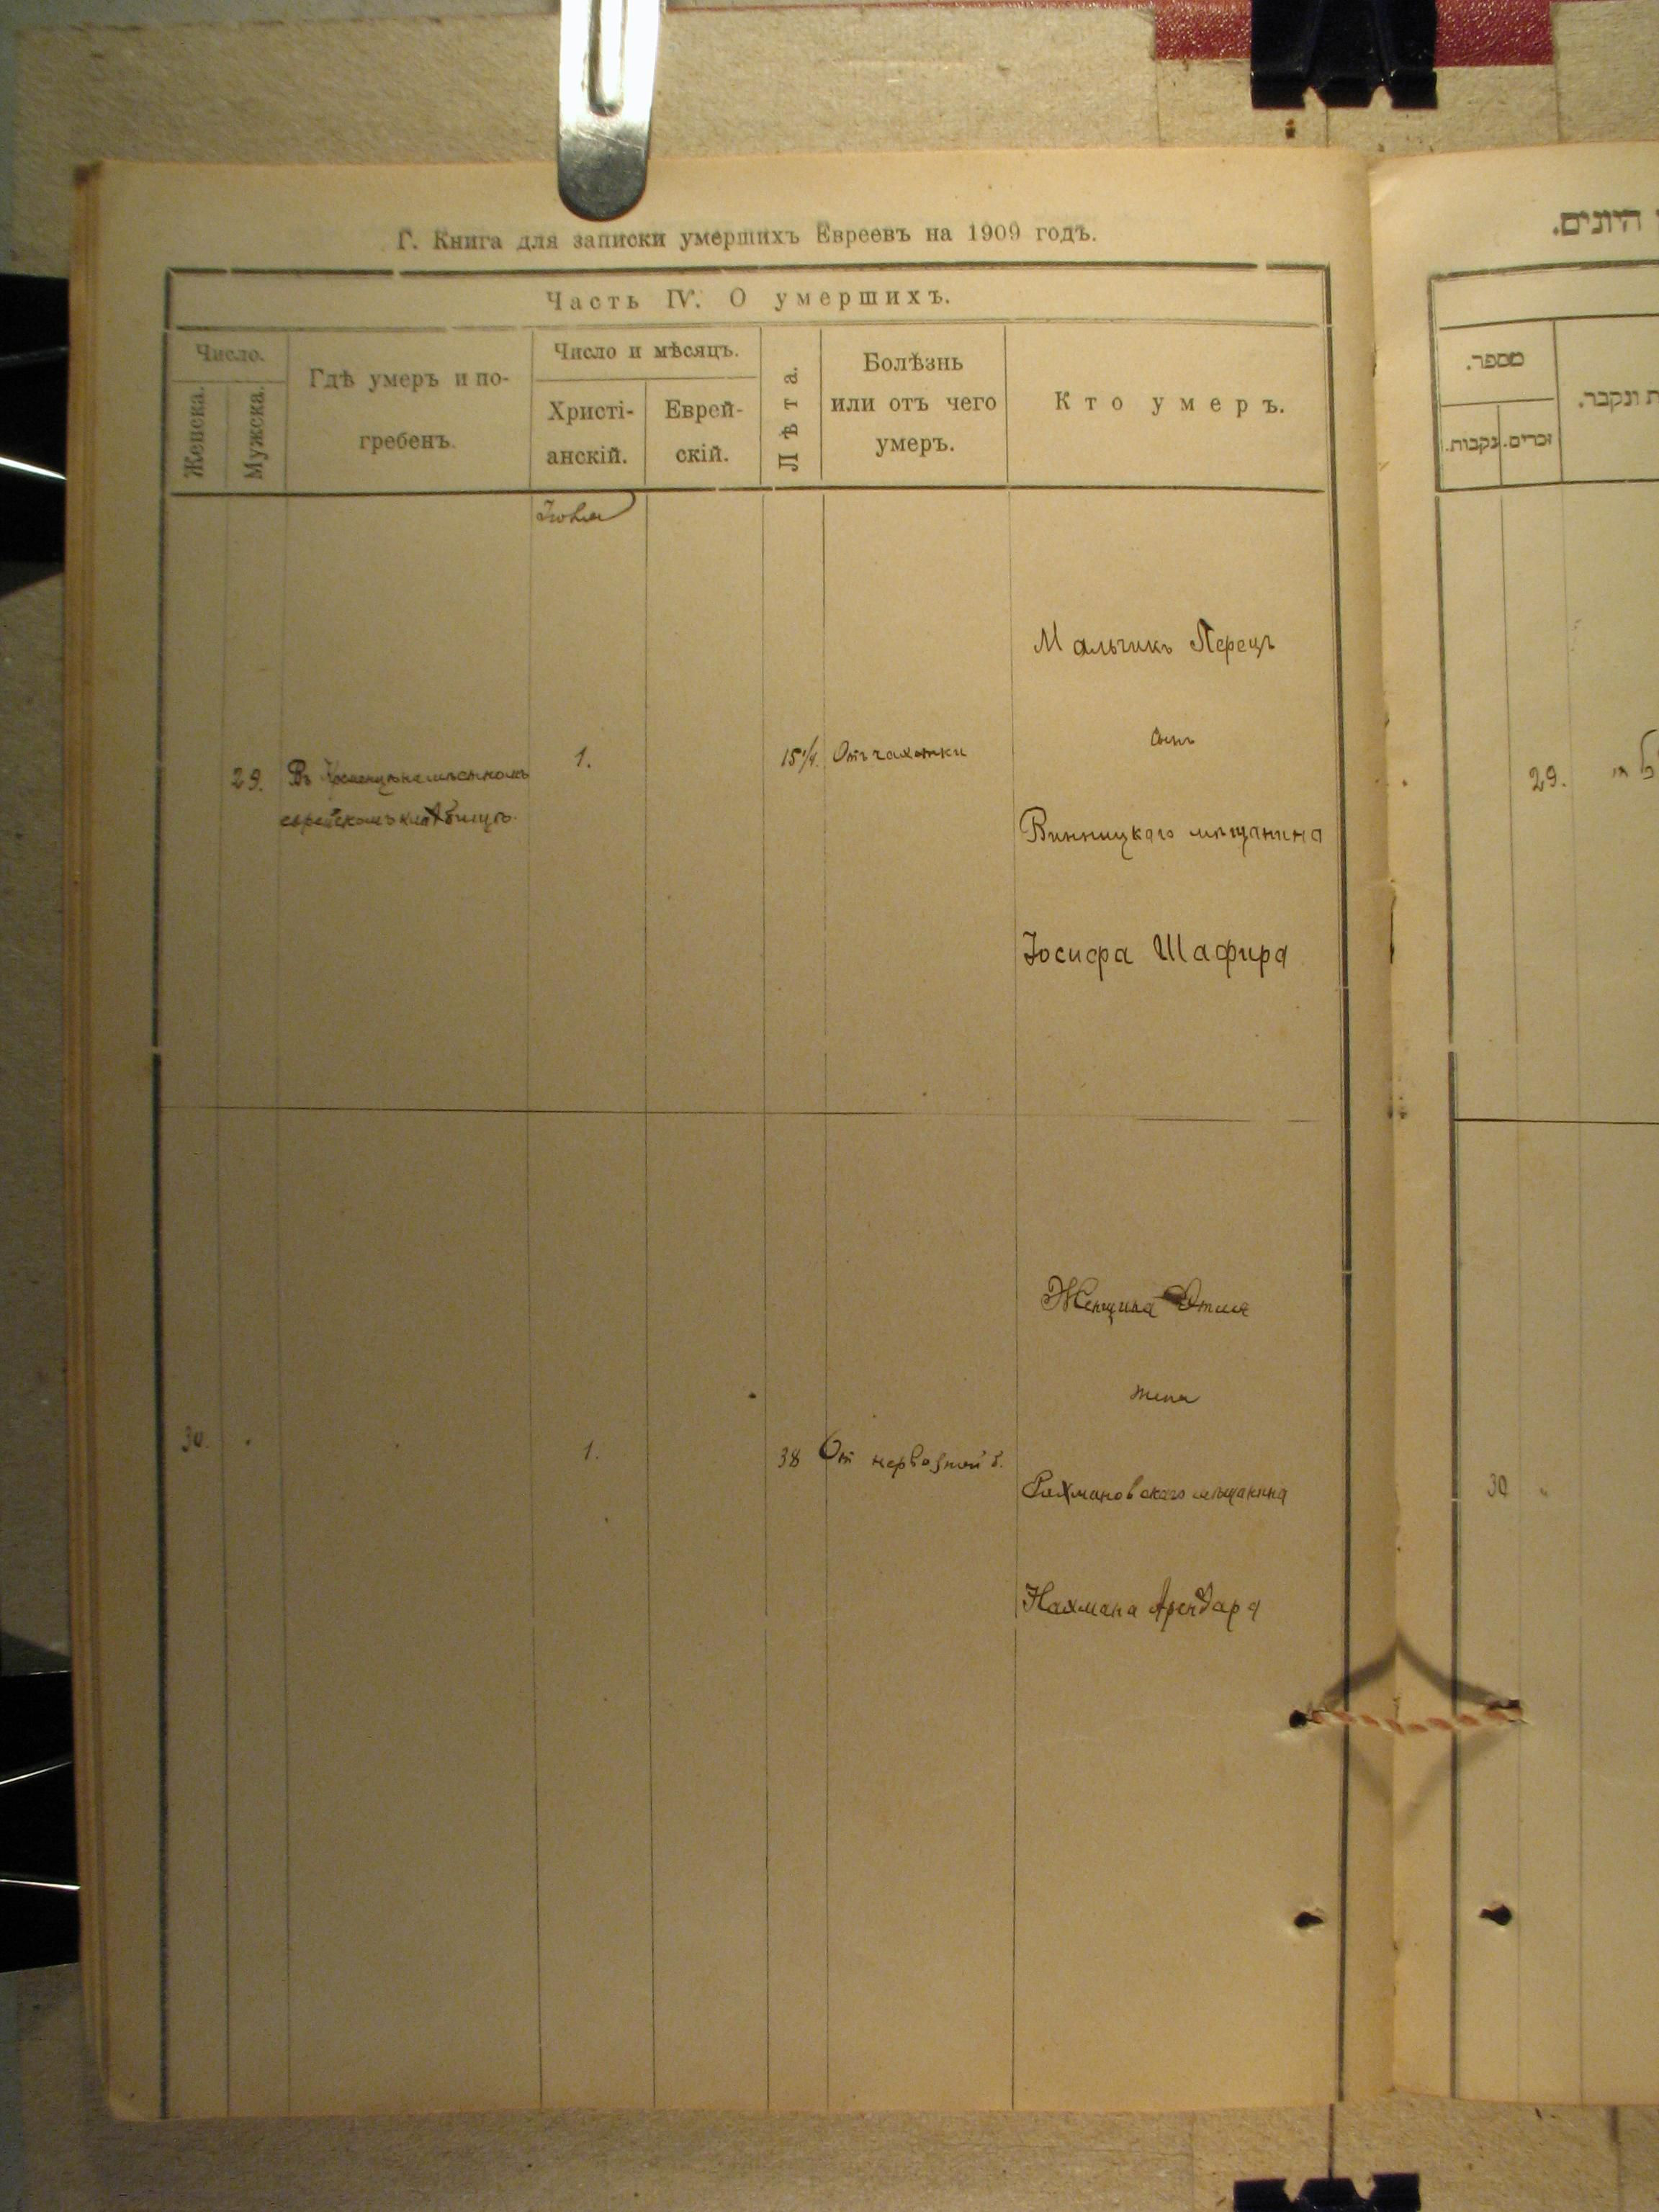 Г. Книга для записки умершихъ Евреевъ на 1909 годъ.
Часть IV. О умершихъ.
Число.
Женска.
Мужска.
Гдѣ умеръ и по-
гребенъ.
Число и мѣсяцъ.
Христі-
анскій.
Еврей-
скій.
Лѣта.
Болѣзнь
или отъ чего
умеръ.
Кто умеръ.
29.
Въ Кременцѣ на мѣстномъ
еврейскомъ кладбищѣ.
1.
15 1/4.
Отъ чахотки
Мальчикъ Перецъ
сынъ
Винницкаго мѣщанина
Іосифа Шафира
30.
1.
38
От нервозной б.
Женщина
жена
Рахмановскаго мѣщанина
Нахмана Арендара
היונים.
מספר.
זכרים.
נקבות.
ונקבר.
29.
30